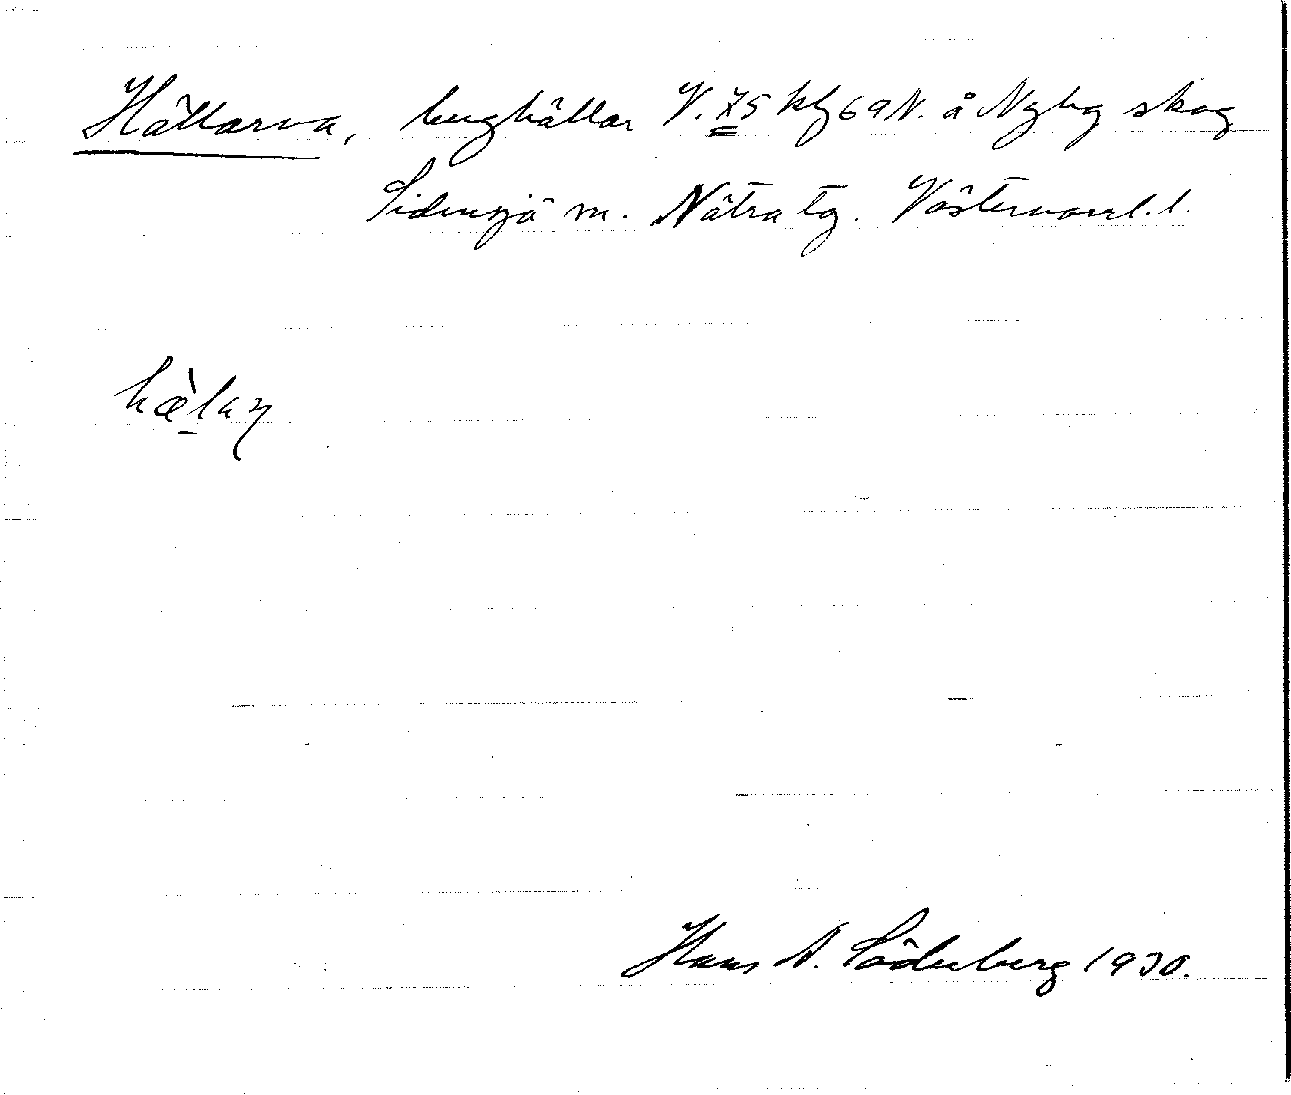 Hällarna, berghällar V. 75 kbf 69 N. å Nyby skog
Sidensjö sn. Nätra tg. Västernorrl. l.
hæ̀lạṇ
Hans A. Söderberg 1930.